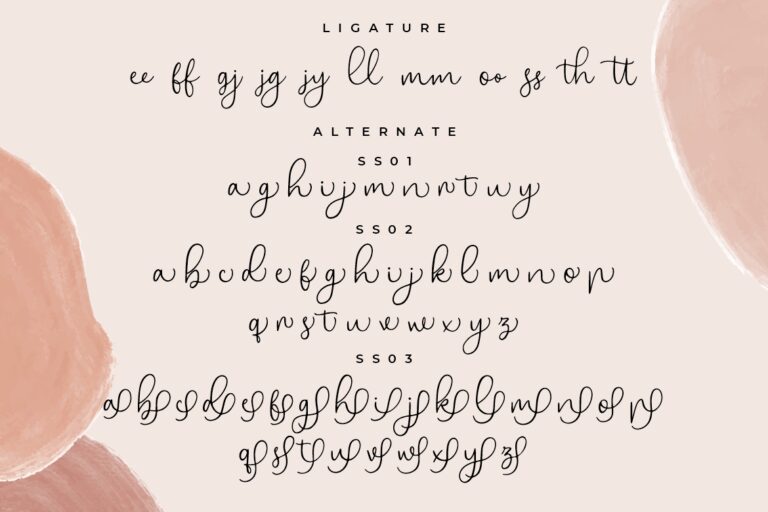 LIGATURE
ee ff gj jg jy ll mm oo ss th tt
ALTERNATE
SS01
a g h i j m n r t u y
SS02
a b c d e f g h i j k l m n o p
q r s t u v w x y z
SS03
a b c d e f g h i j k l m n o p
q s t u v w x y z